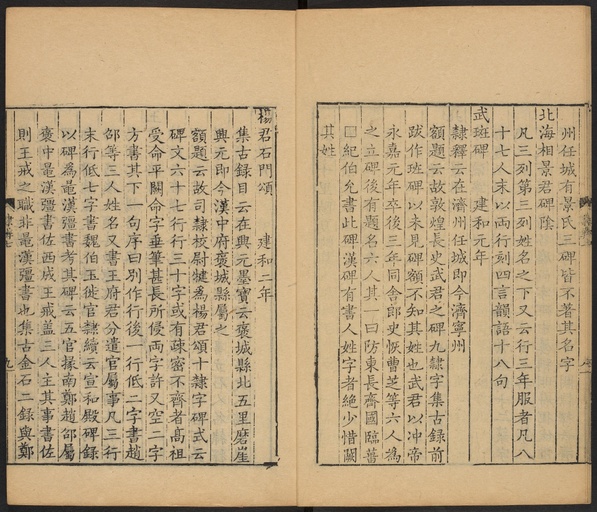 州任城有景氏三碑皆不著其名字
北海相景君碑陰
凡三列第三列姓名之下又云行三年服者凡八
十七人末以兩行刻四言韻語十八句
武斑碑 建和元年
隸釋云在濟州任城即今濟寧州
額題云故敦煌長史武君之碑九隸字集古錄前
跋作班碑以未見碑額不知其姓也武君以冲帝
永嘉元年卒後三年同舍郎史恢曹芝等六人為
之立碑後有題名六人其一曰防東長齊國臨菑
□紀伯允書此碑漢碑有書人姓字者絶少惜闕
其姓
楊君石門頌 建和二年
集古錄目云在興元墨寶云褒城縣北五里磨崖
興元即今漢中府褒城縣屬之
額題云故司隸校尉犍為楊君頌十隸字碑式云
碑文六十七行行三十字或有疎密不齊者高祖
受命平闕命字垂筆甚長所侵兩字許又空二字
方書其下一句序曰別作行後一行低二字書趙
邵等三人姓名又書王府君分遣官屬事凡三行
末行低七字書魏伯玉徙官隸續云宣和殿碑錄
以碑為鼂漢彊書考其碑云五官掾南鄭趙邵屬
褒中鼂漢彊書佐西成王戒蓋三人主其事書佐
則王戒之職非鼂漢彊書也集古金石二錄與鄭
隸辨 九